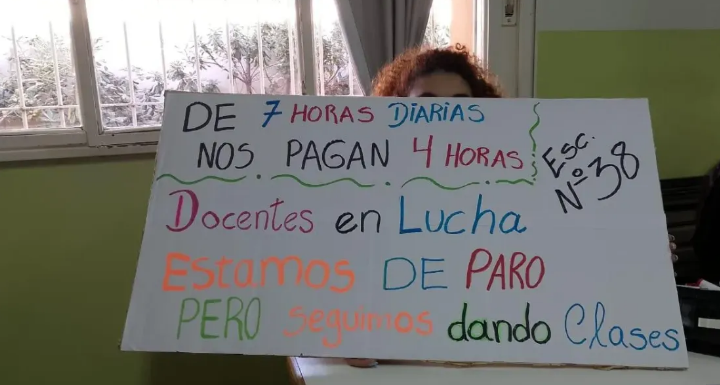 DE 7 HORAS DIARIAS
NOS PAGAN 4 HORAS
Esc.
Nº 38
Docentes en Lucha
Estamos DE PARO
PERO seguimos dando Clases